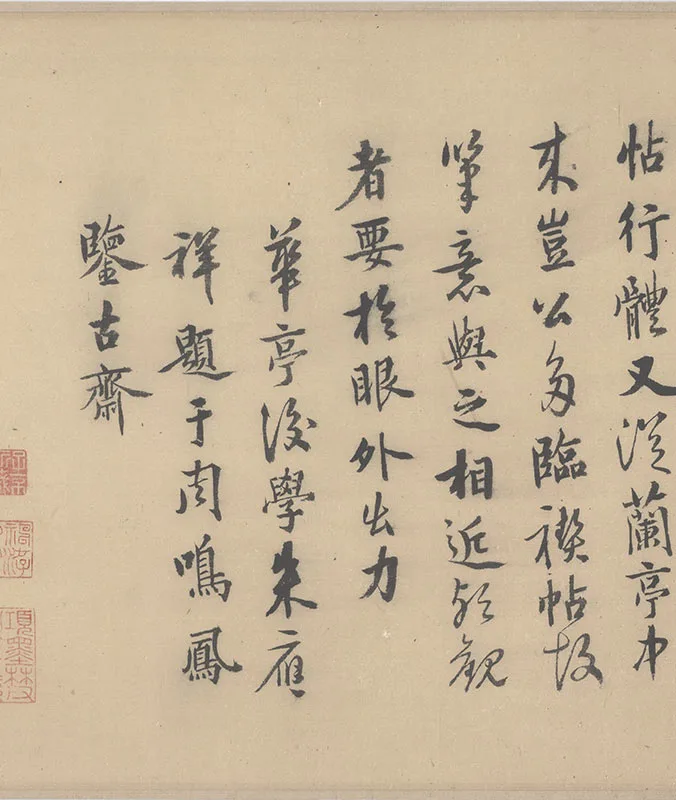 帖行體又從蘭亭中
来豈公多臨禊帖故
筆意與之相近欤觀
者要於眼外出力
華亭後學朱應
祥題于周鳴鳳
鑒古齋
項墨林